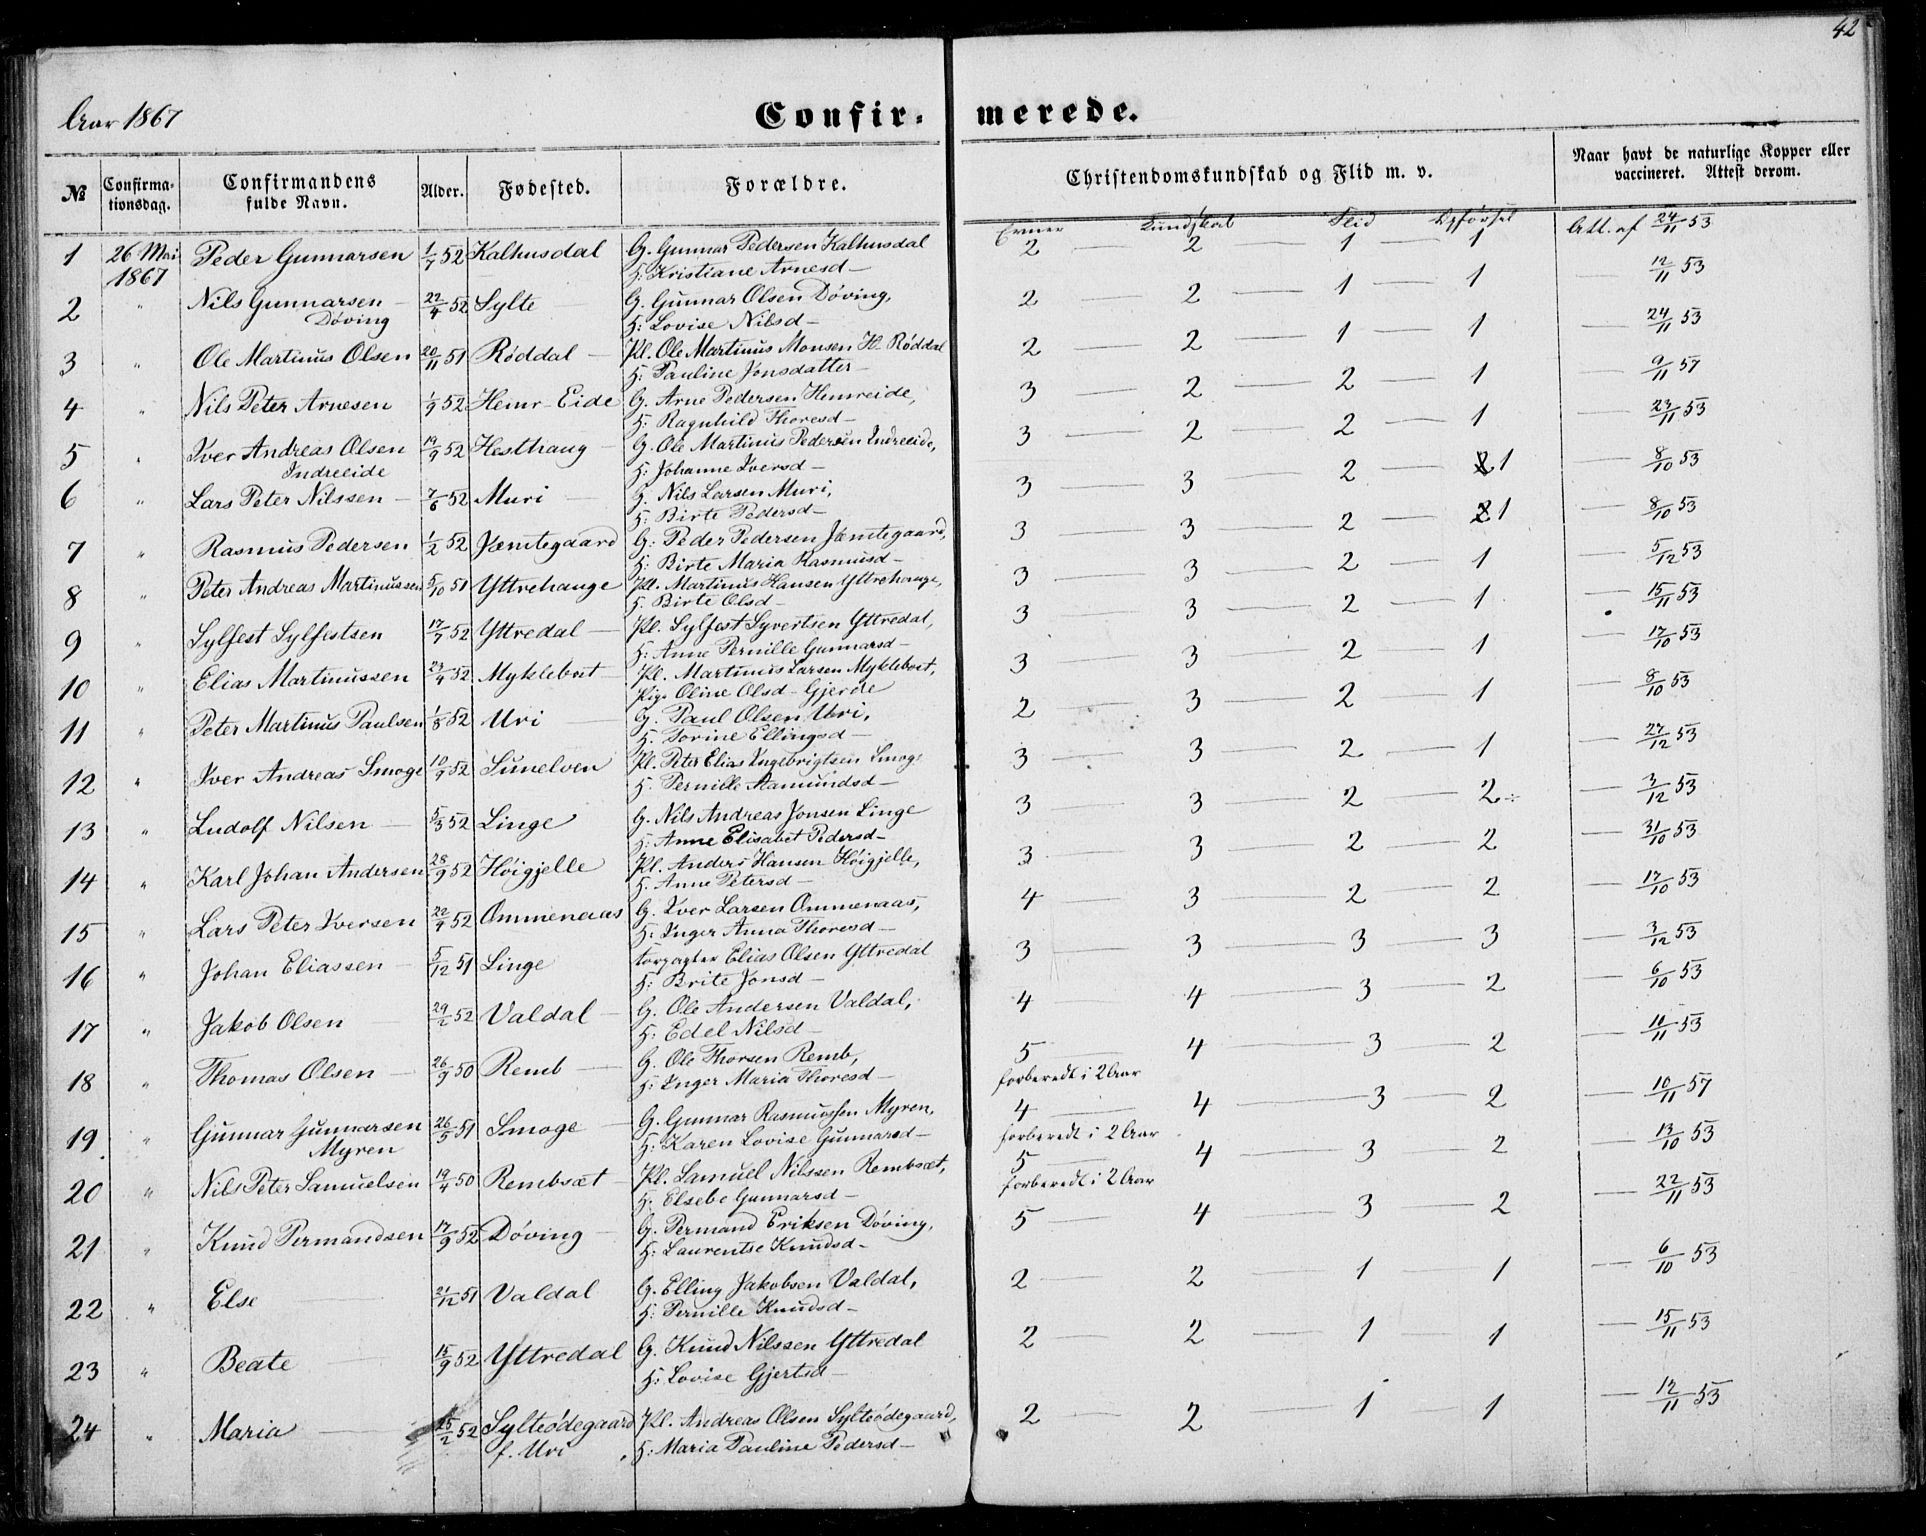 42
Aar 1867
Confirmerede.
№ Confirmationsdag. Confirmandens fulde Navn. Alder. Fødested. Forældre. Christendomskundskab og Flid m. v. Naar havt de naturlige Kopper eller vaccineret. Attest derom.
Evner Kundskab Flid Opførsel
1 26 Mai Peder Gunnarsen 1/7 52 Kalhusdal G. Gunnar Pedersen Kalhusdal 2 — 2 — 1 — 1 Att. af 24/11 53
1867 H: Kristiane Arnesd—
2 " Nils Gunnarsen — 22/4 52 Sylte G. Gunnar Olsen Døving, 2 — 2 — 1 — 1 — 12/11 53
Døving H: Lovise Nilsd—
3 " Ole Martinus Olsen 20/11 51 Røddal — Pl. Ole Martinus Monsen H. Røddal 2 — 2 — 1 — 1 — 24/11 53
H: Pauline Jonsdatter—
4 " Nils Peter Arnesen 1/9 52 Hemr-Eide G. Arne Pedersen Hemreide, 3 — 2 — 2 — 1 — 9/11 57
H: Ragnhild Thoresd—
5 " Iver Andreas Olsen 19/9 52 Hesthaug — G. Ole Martinus Pedersen Indreeide, 3 — 2 — 2 — 1 — 23/11 53
Indreeide H: Johanne Iversd—
6 " Lars Peter Nilssen — 7/6 52 Muri — G. Nils Larsen Muri, 3 — 3 — 2 — 1 — 8/10 53
H: Birte Pedersd—
7 " Rasmus Pedersen 1/2 52 Jæmtegaard G: Peder Pedersen Jæmtegaard, 3 — 3 — 2 — 1 — 8/10 53
H: Birte Maria Rasmusd—
8 " Peter Andreas Martinussen 5/10 51 Yttrehauge Pl. Martinus Hansen Yttrehauge, 3 — 3 — 2 — 1 — 5/12 53
H. Birte Olsd—
9 " Sylfest Sylfestsen 17/7 52 Yttredal — Pl. Sylfest Syvertsen Yttredal, 3 — 3 — 2 — 1 — 15/11 53
H: Anne Pernille Gunnarsd—
10 " Elias Martinussen 23/4 52 Myklebust — Pl. Martinus Larsen Myklebust, 3 — 3 — 2 — 1 — 17/10 53
Pige Oline Olsd— Gjerde
11 " Peter Martinus Paulsen 1/8 52 Uri — G. Paul Olsen Uri, 2 — 3 — 2 — 1 — 8/10 53
H. Torine Ellingsd—
12 " Iver Andreas Smoge 10/9 52 Sunelven Pl. Peter Elias Ingebrigtsen Smoge 3 — 3 — 2 — 1 — 27/12 53
H. Pernille Aamundsd—
13 " Ludolf Nilsen — 5/3 52 Linge G. Nils Andreas Jonsen Linge 3 — 3 — 2 — 2÷ — 3/12 53
H: Anne Elisabet Pedersd—
14 " Karl Johan Andersen 28/9 52 Høigjelle Pl. Anders Hansen Høigjelle, 3 — 3 — 2 — 2 — 31/10 53
H. Anne Petersd—
15 " Lars Peter Iversen 22/9 52 Ommenaas G. Iver Larsen Ommenaas, 4 — 3 — 2 — 2 — 17/10 53
H: Inger Anna Thoresd—
16 " Johan Eliassen — 5/12 51 Linge forpagter Elias Olsen Yttredal 3 — 3 — 3 — 3 — 3/12 53
H: Brite Jonsd—
17 " Jakob Olsen 29/2 52 Valdal — G. Ole Andersen Valdal, 4 — 4 — 3 — 2 — 6/10 53
H: Edel Nilsd—
18 " Thomas Olsen — 26/9 50 Remb — G. Ole Thorsen Remb, 5 — 4 — 3 — 2 — 11/11 53
H: Inger Maria Thoresd— forberedt i 2 Aar
19 " Gunnar Gunnarsen 26/5 51 Smoge — G. Gunnar Rasmussen Myren, 4 — 4 — 3 — 2 — 10/11 57
Myren H: Karen Lovise Gunnarsd— forberedt i 2 Aar
20 " Nils Peter Samuelsen 19/4 50 Rembsæt — Pl. Samuel Nilssen Rembsæt, 5 — 4 — 3 — 2 — 13/10 53
H. Elsebe Gunnarsd— forberedt i 2 Aar
21 " Knud Permandsen 17/9 52 Døving — G. Permand Eriksen Døving, 5 — 4 — 3 — 2 — 22/11 53
H: Laurentse Knudsd—
22 " Else — 21/12 51 Valdal G. Elling Jakobsen Valdal, 2 — 2 — 1 — 1 — 6/10 53
H: Pernille Knudsd—
23 " Beate — 15/9 52 Yttredal G. Knud Nilssen Yttredal 2 — 2 — 1 — 1 — 15/11 53
H: Lovise Gjertsd—
24 " Maria — 25/2 52 Sylteødegaard Pl. Andreas Olsen Sylteødegaard, 2 — 2 — 1 — 1 — 12/11 53
f. Uri H: Maria Pauline Pedersd—